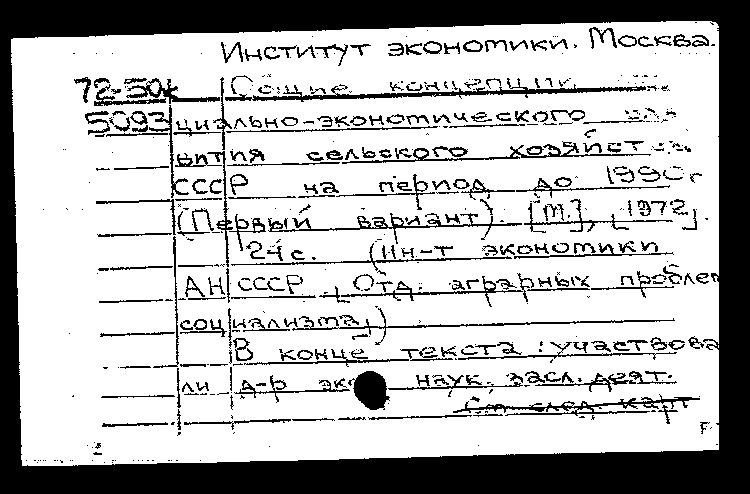 Институт экономики. Москва.
72-50к Общие концепции
5093 циально-экономического раз-
вития сельского хозяйст
СССР на период до 1990г
(Первый вариант). [М.], [1972].
24с. (Ин-т экономики
АН СССР [Отд. аграрных проблем
социализма])
В конце текста: участвова
ли д-р эко наук, засл. деят.
См след. карт